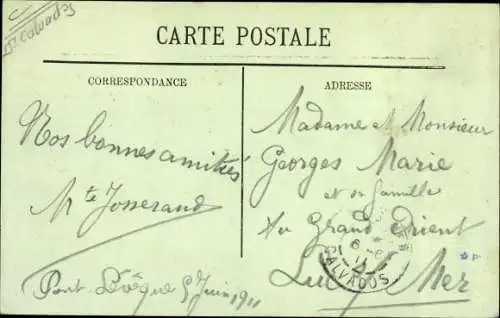 C
Dt Calvados
CARTE POSTALE
CORRESPONDANCE
ADRESSE
Nos bonnes amitiés
Mte Josserand
Pont L'évêque 5 Juin 1911
Madame et Monsieur
Georges Marie
et sa famille
Au Grand Orient
Luc s/ Mer
CALVADOS